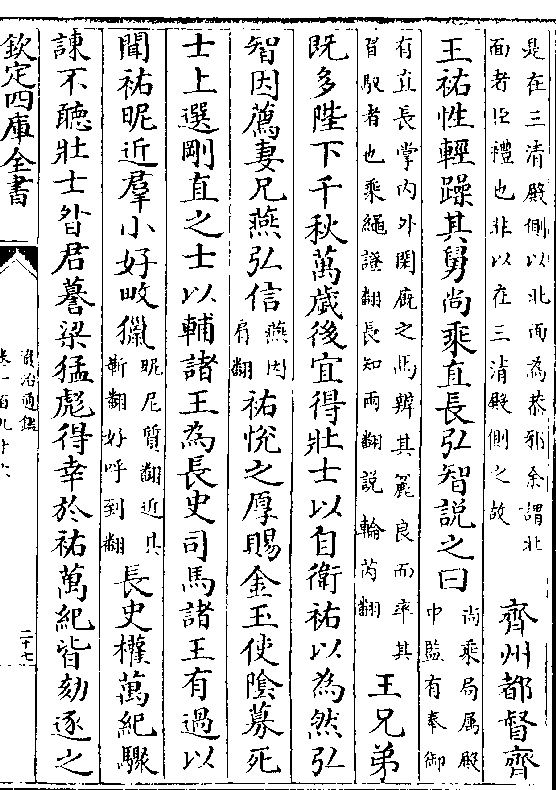 是在三清殿側以北面為恭邪余謂北
面者臣禮也非以在三清殿側之故
齊州都督齊
王祐性輕躁其舅尚乘直長弘智說之曰
尚乘局屬殿
中監有奉御
有直長掌内外閑廐之馬辨其麤良而率其
習馭者也乘繩證翻長知兩翻說輸芮翻
王兄弟
既多陛下千秋萬歲後宜得壯士以自衛祐以為然弘
智因薦妻兄燕弘信
燕因
肩翻
祐悦之厚賜金玉使隂募死
士上選剛直之士以輔諸王為長史司馬諸王有過以
聞祐昵近羣小好畋獵
昵尼質翻近其
靳翻好呼到翻
長史權萬紀驟
諫不聽壯士昝君謩梁猛彪得幸於祐萬紀皆劾逐之
欽定四庫全書
資治通鑑
卷一百九十六
二十七